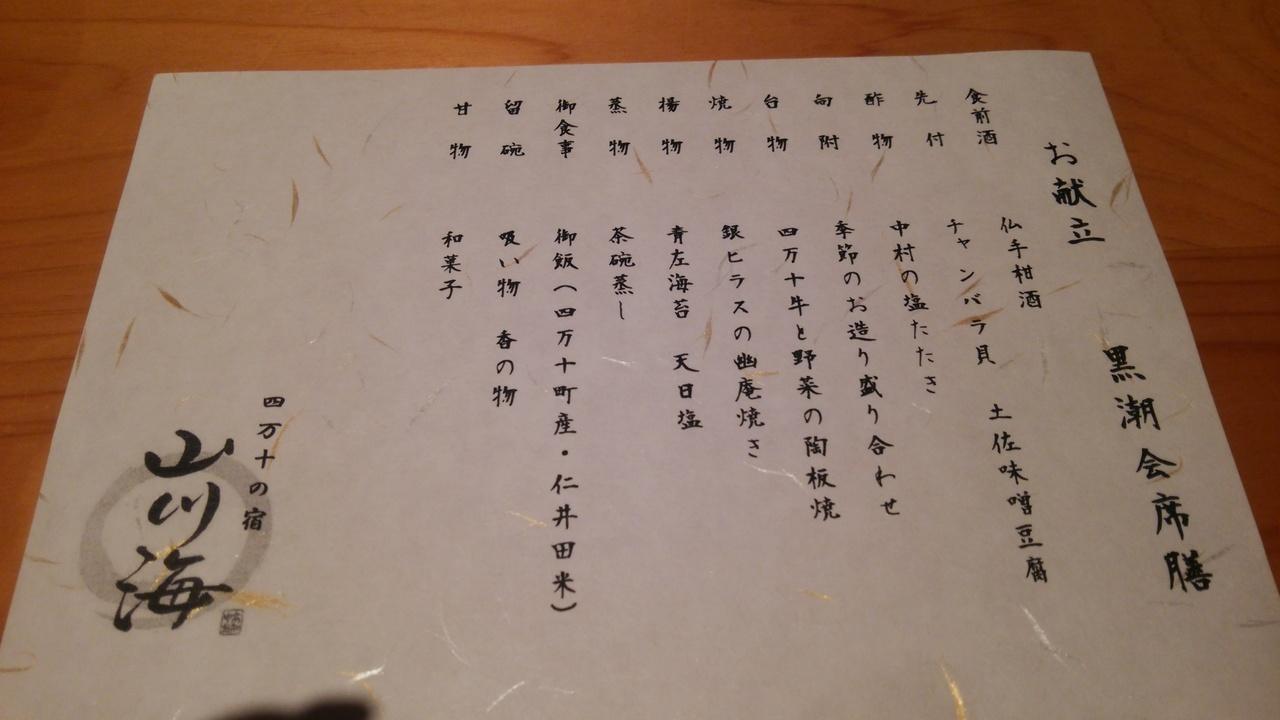 お献立
黒潮会席膳
食前酒 仏手柑酒
先付 チャンバラ貝 土佐味噌豆腐
酢物 中村の塩たたき
向附 季節のお造り盛り合わせ
台物 四万十牛と野菜の陶板焼
焼物 銀ヒラスの幽庵焼き
揚物 青左海苔 天日塩
蒸物 茶碗蒸し
御食事 御飯(四万十町産・仁井田米)
留碗 吸い物 香の物
甘物 和菓子
四万十の宿
山川海